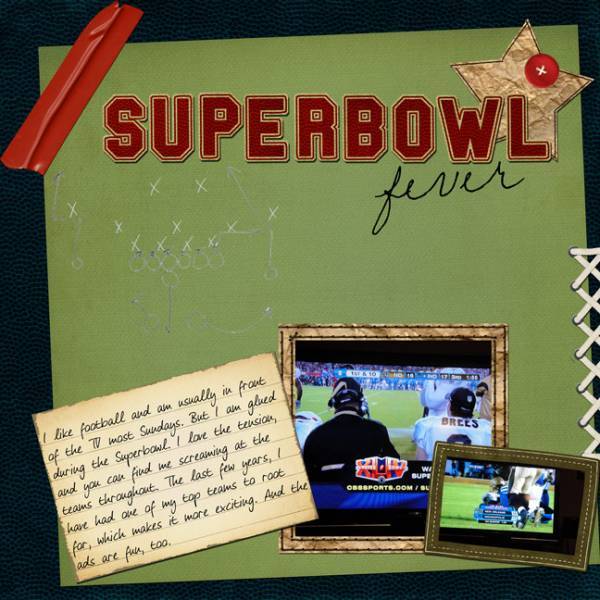 SUPERBOWL
fever
I like football and am usually in front
of the TV most Sundays. But I am glued
during the Superbowl. I love the tension,
and you can find me screaming at the
teams throughout. The last few years, I
have had one of my top teams to root
for, which makes it more exciting. And the
ads are fun, too.
1ST & 10 NO 16 IND 17 3RD 1:55
BREES
XLIV
WA
SUPE
CBSSPORTS.COM / SU
NEW ORLEANS